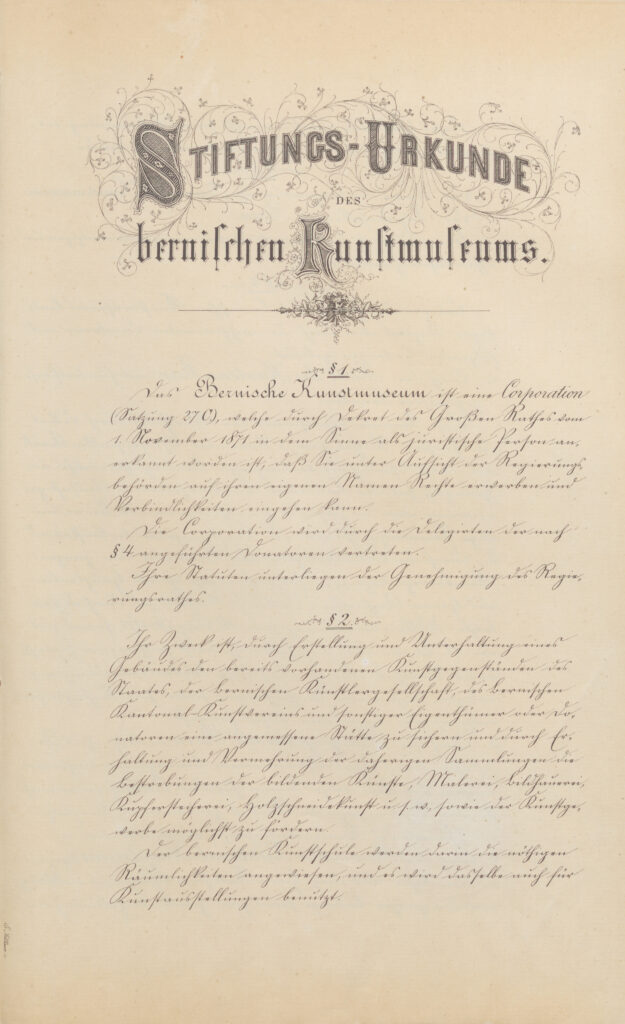 STIFTUNGS-URKUNDE
DES
bernischen Kunstmuseums.
§ 1.
Das Bernische Kunstmuseum ist eine Corporation
(Satzung 27 C), welche durch Dekret des Großen Rathes vom
1. November 1871 in dem Sinne als juristische Person an„
erkannt worden ist, daß Sie unter Aufsicht der Regierungs„
behörden auf ihren eigenen Namen Rechte erwerben und
Verbindlichkeiten eingehen kann.
Die Corporation wird durch die Delegirten der nach
§ 4 angeführten Donatoren vertreten.
Ihre Statuten unterliegen der Genehmigung des Regie„
rungsrathes.
§ 2.
Ihr Zweck ist, durch Erstellung und Unterhaltung eines
Gebäudes den bereits vorhandenen Kunstgegenständen des
Staates, der bernischen Künstlergesellschaft, des bernischen
Kantonal-Kunstvereins und sonstiger Eigenthümer oder Do„
natoren eine angemessene Stätte zu sichern und durch Er„
haltung und Vermehrung der daherigen Sammlungen die
Bestrebungen der bildenden Künste, Malerei, Bildhauerei,
Kupferstecherei, Holzschneidekunst u. s. w. sowie der Kunstge„
werbe möglichst zu fördern.
Der bernischen Kunstschule werden darin die nöthigen
Räumlichkeiten angewiesen, und es wird dasselbe auch für
Kunstausstellungen benutzt.